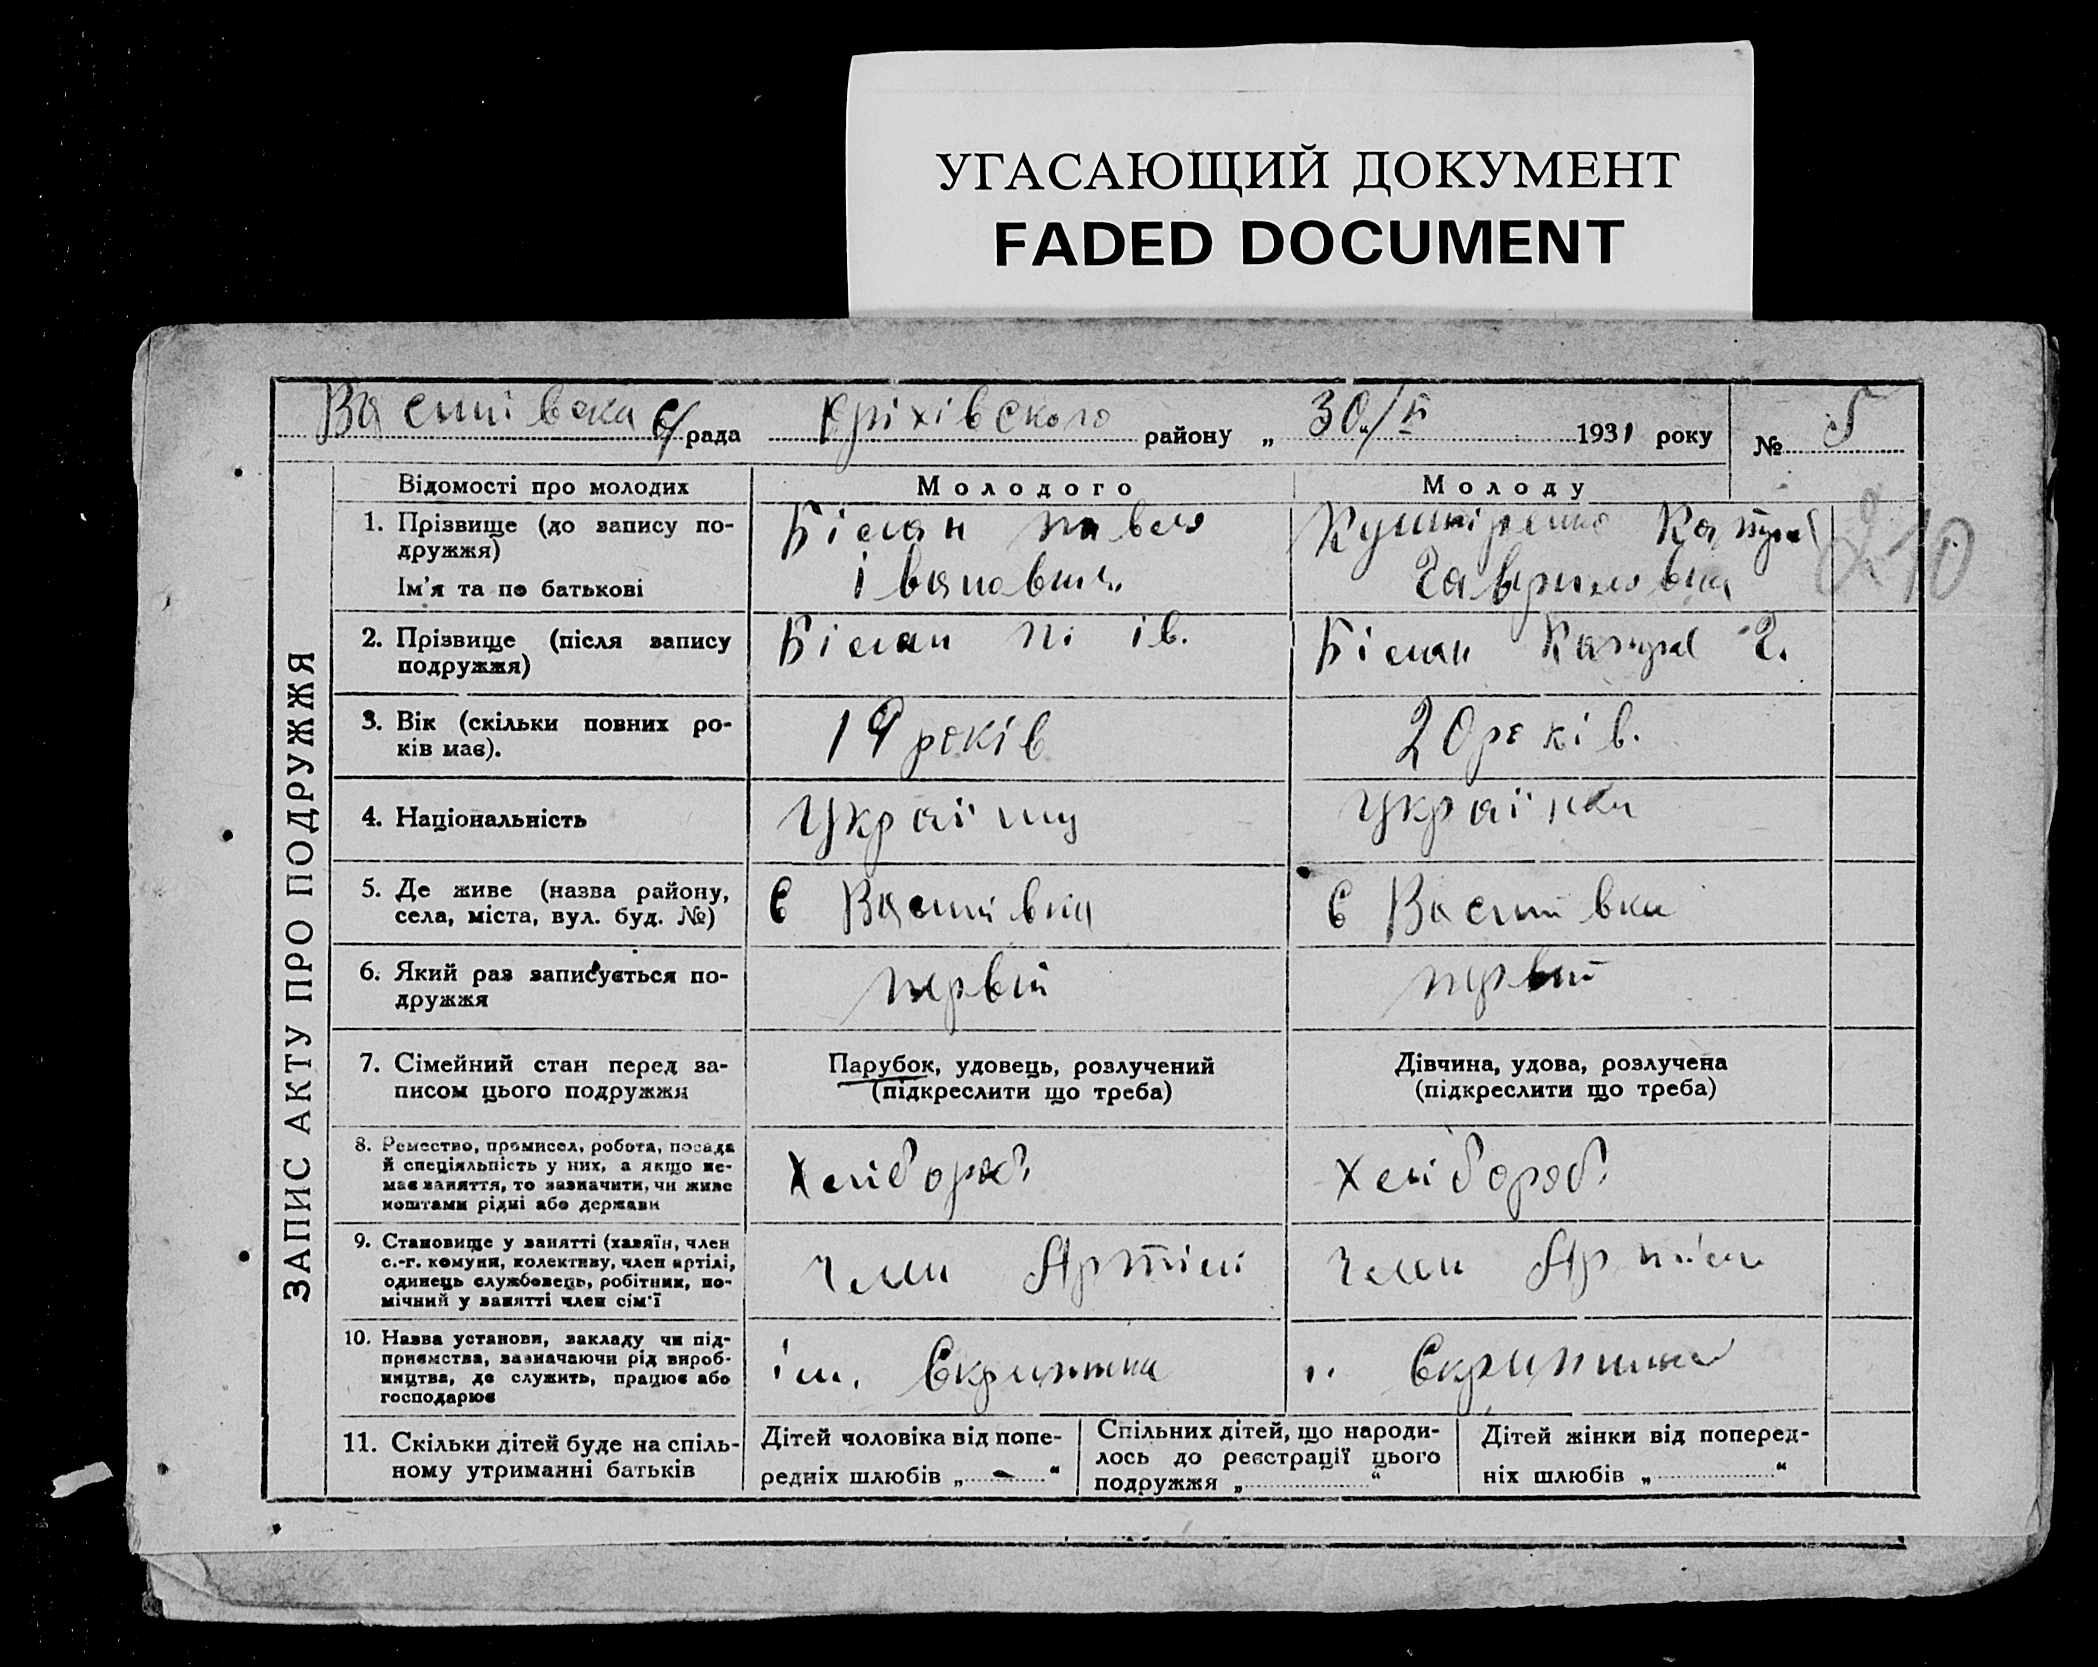 УГАСАЮЩИЙ ДОКУМЕНТ
FADED DOCUMENT
с/рада Оріхівского району „ 30/ 1931 року № 5
ЗАПИС АКТУ ПРО ПОДРУЖЖЯ
Відомості про молодих Молодого Молоду
1. Прізвище (до запису по-
дружжя)
Ім'я та по батькові
Білан Павло
Іванович
Кушніренко
Гавриловна
2. Прізвище (після запису
подружжя)
Білан П. Ів.
Білан Г.
3. Вік (скільки повних ро-
ків має).
19 років
20 років.
4. Національність
Україниц
Українка
5. Де живе (назва району,
села, міста, вул. буд. №)
С
С
6. Який раз записується по-
дружжя
первий
первий
7. Сімейний стан перед за-
писом цього подружжя
Парубок, удовець, розлучений
(підкреслити що треба)
Дівчина, удова, розлучена
(підкреслити що треба)
8. Ремество, промисел, робота, посада
й спеціяльність у них, а якщо не-
має заняття, то зазначити, чи живе
коштами рідні або держави
Хлібороб.
Хлібороб.
9. Становище у занятті (хазяїн, член
с.-г. комуни, колективу, член артілі,
одинець службовець, робітник, по-
мічний у занятті член сім'ї
член Артілі
член Артілі
10. Назва установи, закладу чи під-
приємства, зазначаючи рід вироб-
ництва, де служить, працює або
господарює
ім. Скрипника
" Скрипника
11. Скільки дітей буде на спіль-
ному утриманні батьків
Дітей чоловіка від попе-
редніх шлюбів „ - “
Спільних дітей, що народи-
лось до реєстрації цього
подружжя „ “
Дітей жінки від поперед-
ніх шлюбів „ “